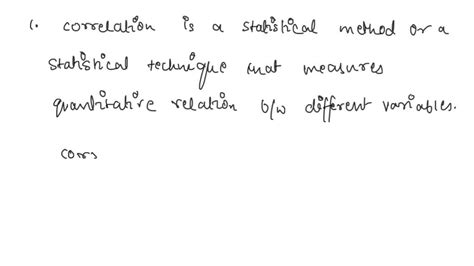 1. correlation is a statistical method or a
statistical technique that measures
quantitative relation b/w different variables.
cors